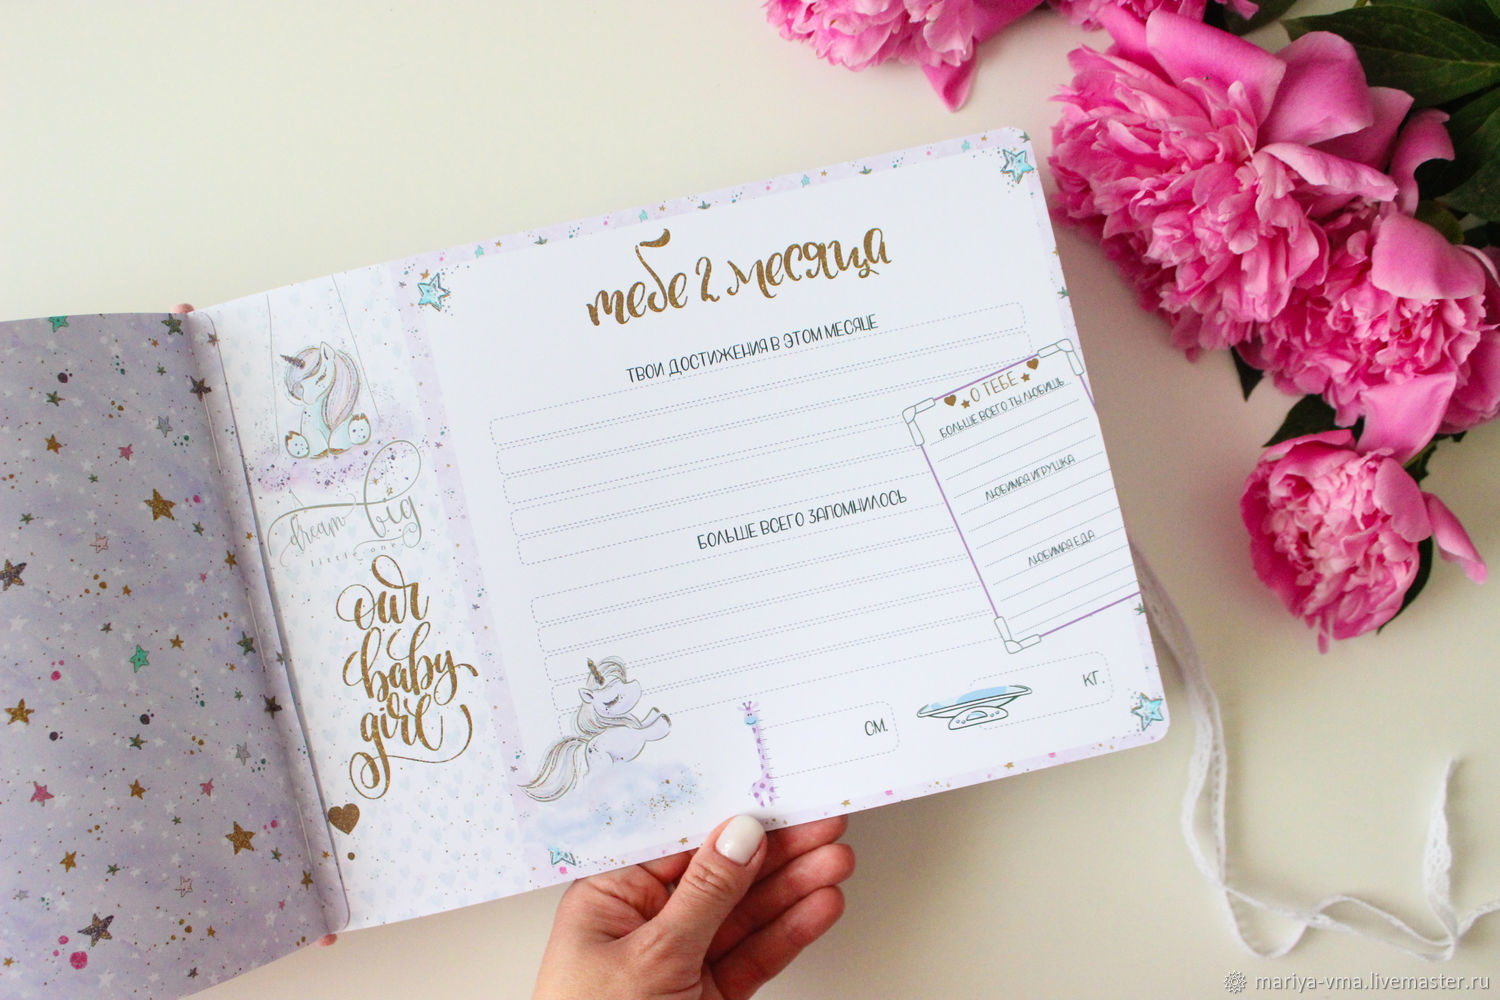 dream big
little one
our
baby
girl
тебе 2 месяца
ТВОИ ДОСТИЖЕНИЯ В ЭТОМ МЕСЯЦЕ
БОЛЬШЕ ВСЕГО ЗАПОМНИЛОСЬ
О ТЕБЕ
БОЛЬШЕ ВСЕГО ТЫ ЛЮБИШЬ
ЛЮБИМАЯ ИГРУШКА
ЛЮБИМАЯ ЕДА
СМ.
КГ.
mariya-vma.livemaster.ru